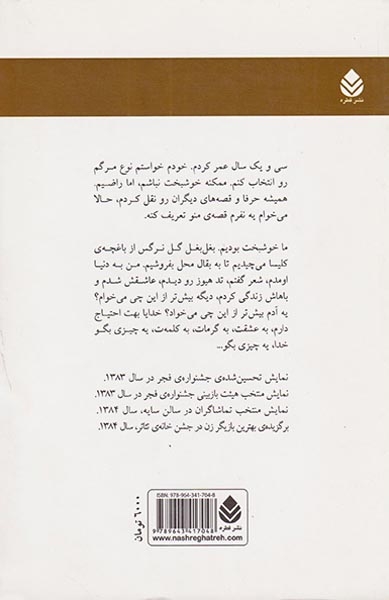 نشر قطره
سی و یک سال عمر کردم. خودم خواستم نوع مرگم
رو انتخاب کنم. ممکنه خوشبخت نباشم، اما راضیم.
همیشه حرفا و قصه‌های دیگران رو نقل کردم، حالا
می‌خوام یه نفرم قصه‌ی منو تعریف کنه.
ما خوشبخت بودیم. بغل‌بغل گل نرگس از باغچه‌ی
کلیسا می‌چیدیم تا به بقال محل بفروشیم. من به دنیا
اومدم، شعر گفتم، تد هیوز رو دیدم، عاشقش شدم و
باهاش زندگی کردم، دیگه بیش‌تر از این چی می‌خوام؟
یه آدم بیش‌تر از این چی می‌خواد؟ خدایا بهت احتیاج
دارم، به عشقت، به گرمات، به کلمه‌ت، یه چیزی بگو
خدا، یه چیزی بگو...
نمایش تحسین‌شده‌ی جشنواره‌ی فجر در سال ۱۳۸۳.
نمایش منتخب هیئت بازبینی جشنواره‌ی فجر در سال ۱۳۸۳.
نمایش منتخب تماشاگران در سالن سایه، سال ۱۳۸۴.
برگزیده‌ی بهترین بازیگر زن در جشن خانه‌ی تئاتر، سال ۱۳۸۴.
۶۰۰۰ تومان
ISBN: 978-964-341-704-8
9 789643 417048
نشر قطره
www.nashreghatreh.com